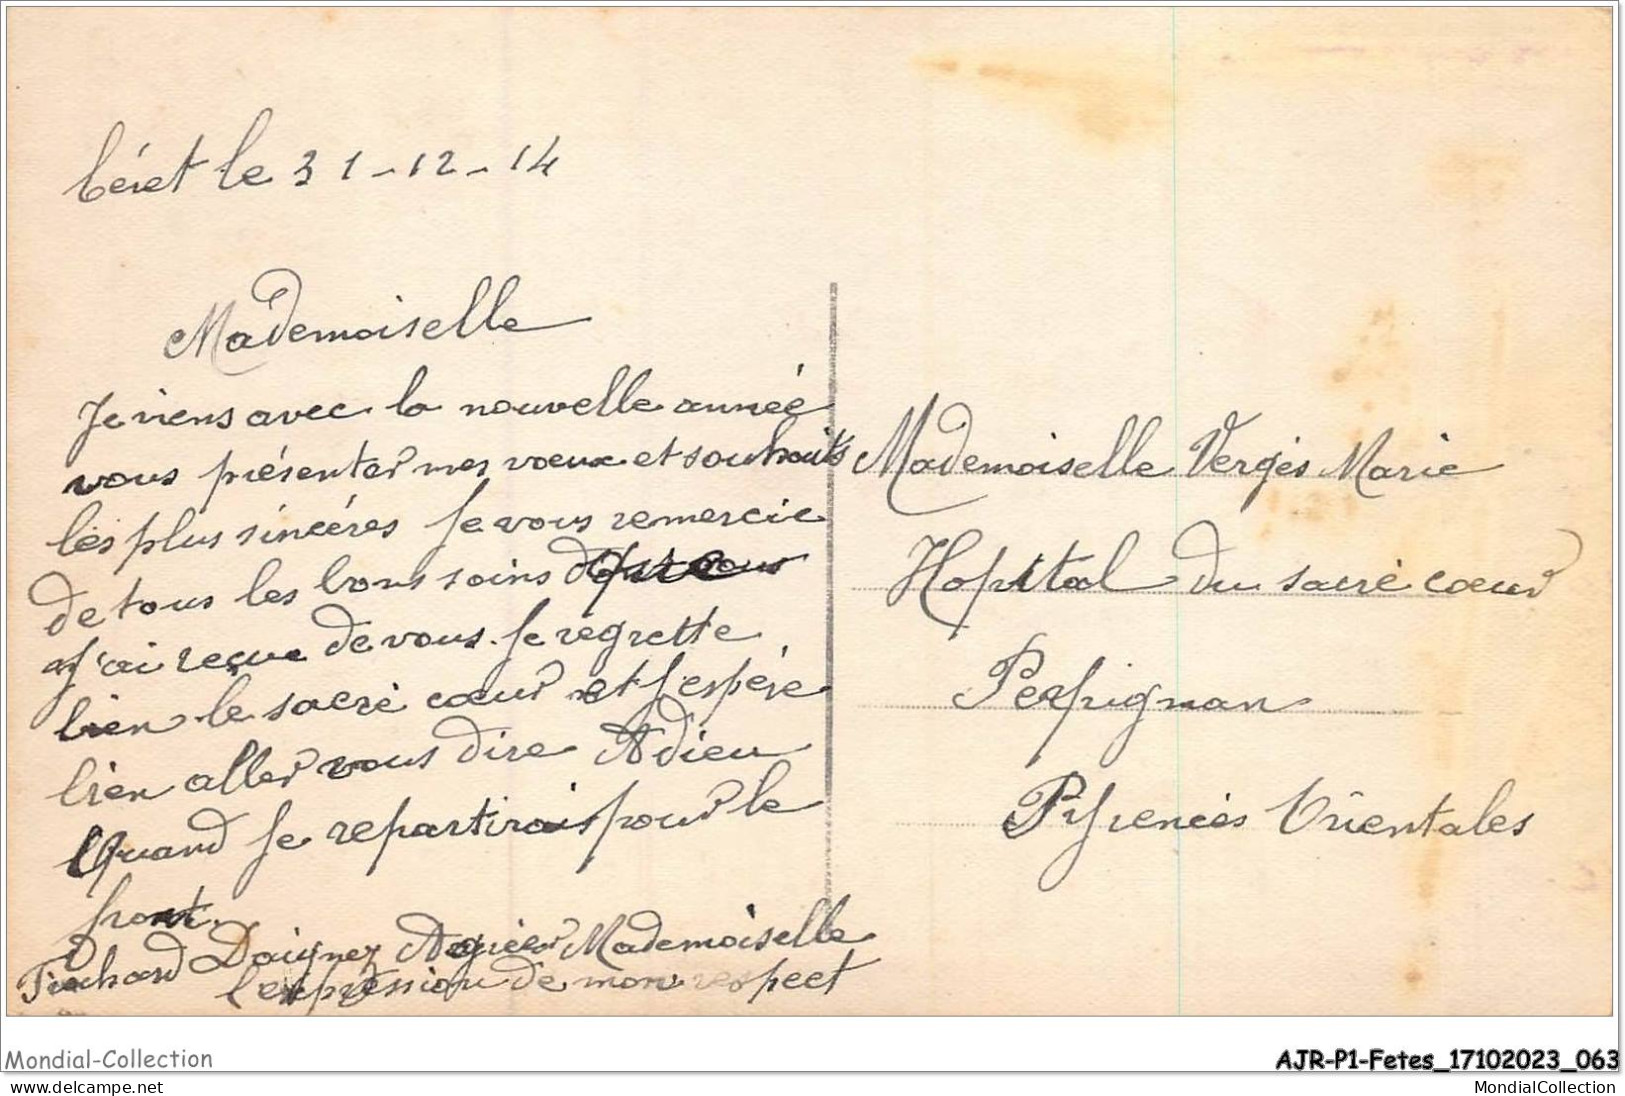 Céret le 31-12-14
Mademoiselle
Je viens avec la nouvelle année
vous présenter mes voeux et souhaits
les plus sincéres Je vous remercie
de tous les bons soins
J'ai reçue de vous. Je regrette
bien le sacré coeur et J'espére
bien aller vous dire Adieu
Quand Je repartirais pour le
front.
Daignez Agréer Mademoiselle
l'expression de mon respect
Mademoiselle Vergés Marie
Hopital du sacré coeur
Perpignan
Pyrenées Orientales
Mondial-Collection
AJR-P1-Fetes_17102023_063
www.delcampe.net
MondialCollection